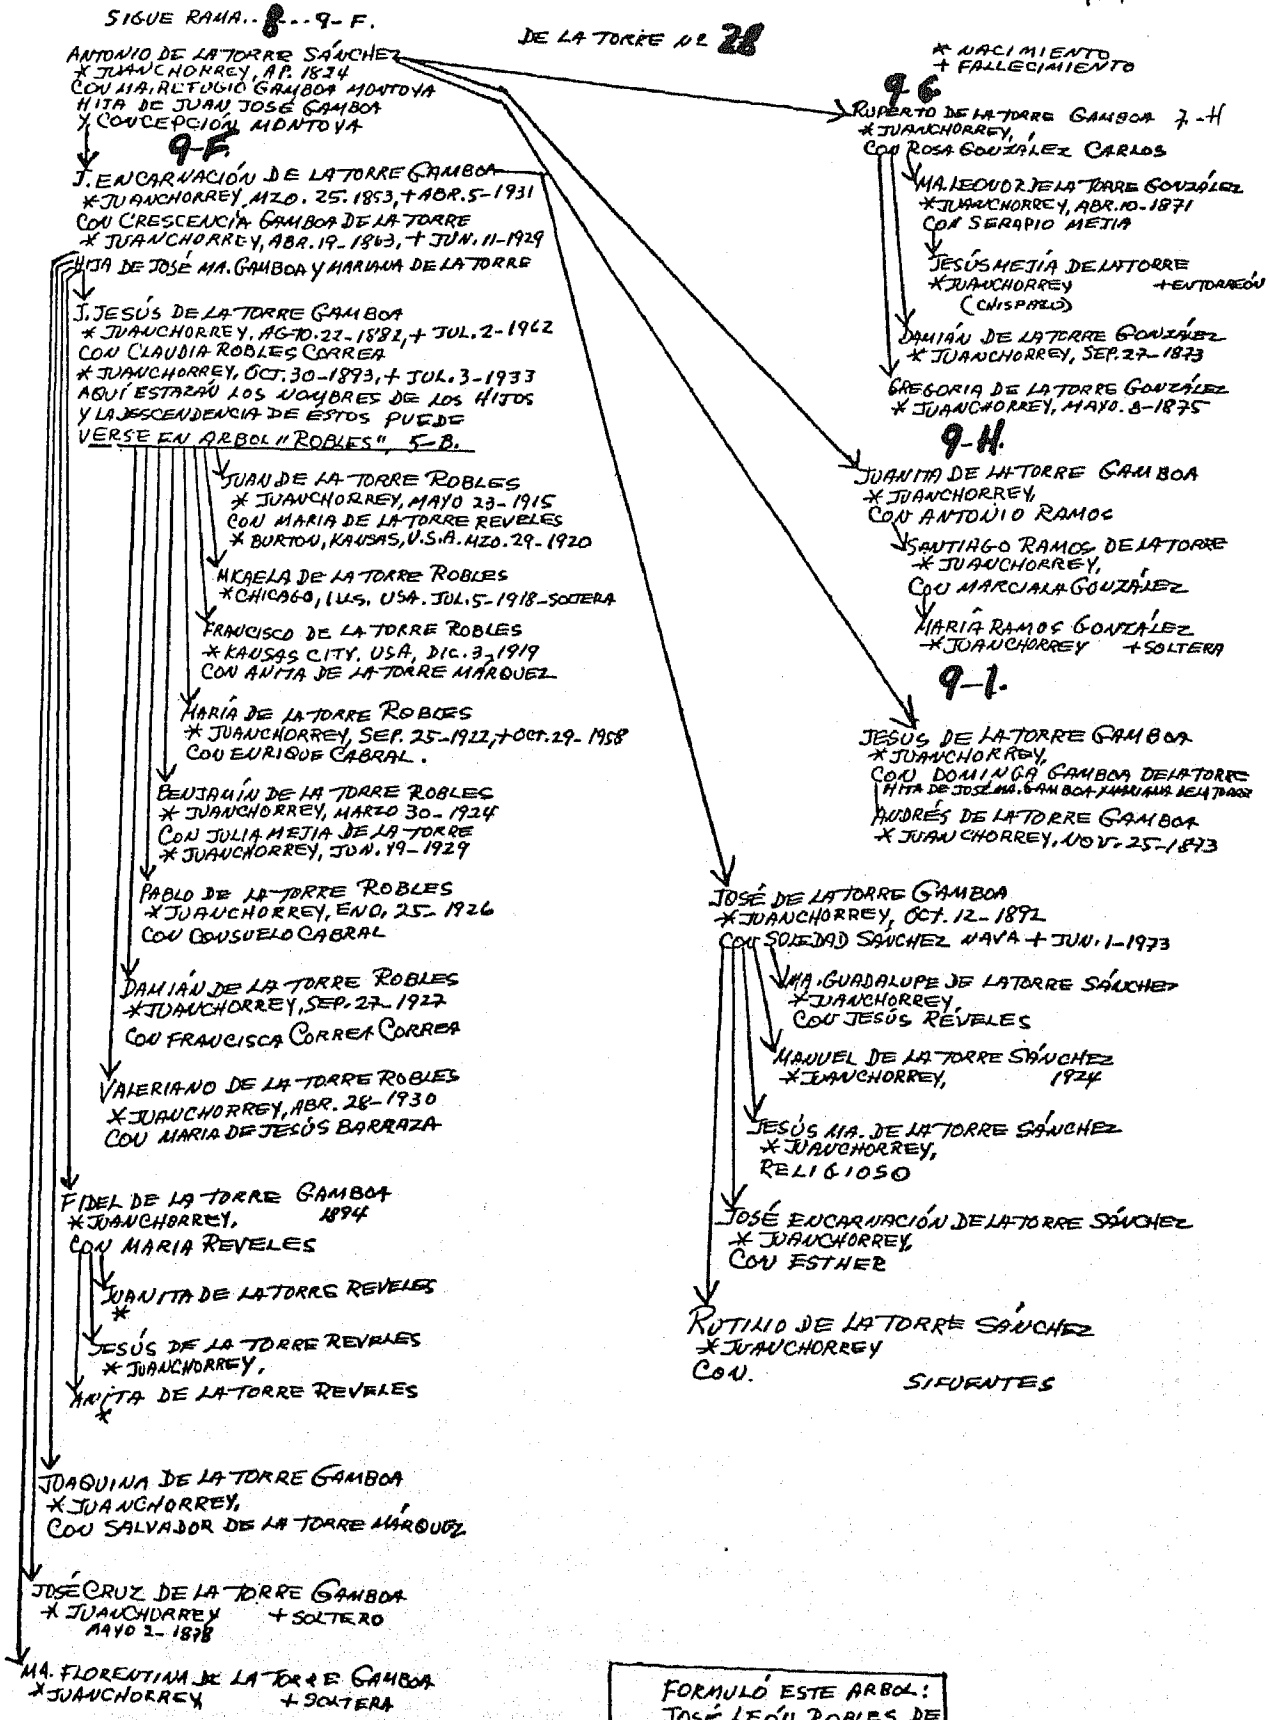 SIGUE RAMA.. 8...9-F.
DE LA TORRE Nº 28
* NACIMIENTO
+ FALLECIMIENTO
ANTONIO DE LA TORRE SÁNCHEZ
* JUANCHORREY, AP. 1824
CON MA. REFUGIO GAMBOA MONTOYA
HIJA DE JUAN JOSÉ GAMBOA
Y CONCEPCIÓN MONTOYA
9-F.
J. ENCARNACIÓN DE LA TORRE GAMBOA
* JUANCHORREY, MZO. 25. 1853, + ABR. 5-1931
CON CRESCENCIA GAMBOA DE LA TORRE
* JUANCHORREY, ABR. 19-1863, + JUN. 11-1929
HIJA DE JOSÉ MA. GAMBOA Y MARIANA DE LA TORRE
J. JESÚS DE LA TORRE GAMBOA
* JUANCHORREY, AGTO. 22-1882, + JUL. 2-1962
CON CLAUDIA ROBLES CORREA
* JUANCHORREY, OCT. 30-1893, + JUL. 3-1933
AQUÍ ESTARÁN LOS NOMBRES DE LOS HIJOS
Y LA DESCENDENCIA DE ESTOS PUEDE
VERSE EN ARBOL "ROBLES", 5-B.
JUAN DE LA TORRE ROBLES
* JUANCHORREY, MAYO 23-1915
CON MARIA DE LA TORRE REVELES
* BURTON, KANSAS, U.S.A. MZO. 29-1920
MICAELA DE LA TORRE ROBLES
* CHICAGO, ILLS. USA. JUL. 5-1918-SOLTERA
FRANCISCO DE LA TORRE ROBLES
* KANSAS CITY. USA, DIC. 3-1919
CON ANITA DE LA TORRE MÁRQUEZ
MARÍA DE LA TORRE ROBLES
* JUANCHORREY, SEP. 25-1922, + OCT. 29-1958
CON ENRIQUE CABRAL.
BENJAMÍN DE LA TORRE ROBLES
* JUANCHORREY, MARZO 30-1924
CON JULIA MEJIA DE LA TORRE
* JUANCHORREY, JUN. 19-1929
PABLO DE LA TORRE ROBLES
* JUANCHORREY, ENO. 25-1926
CON CONSUELO CABRAL
DAMIÁN DE LA TORRE ROBLES
* JUANCHORREY, SEP. 27-1927
CON FRANCISCA CORREA CORREA
VALERIANO DE LA TORRE ROBLES
* JUANCHORREY, ABR. 28-1930
CON MARIA DE JESÚS BARRAZA
FIDEL DE LA TORRE GAMBOA
* JUANCHORREY, 1894
CON MARIA REVELES
JUANITA DE LA TORRE REVELES
*
JESÚS DE LA TORRE REVELES
* JUANCHORREY,
ANITA DE LA TORRE REVELES
*
JOAQUINA DE LA TORRE GAMBOA
* JUANCHORREY,
CON SALVADOR DE LA TORRE MÁRQUEZ
JOSÉ CRUZ DE LA TORRE GAMBOA
* JUANCHORREY + SOLTERO
MAYO 2-1878
MA. FLORENTINA DE LA TORRE GAMBOA
* JUANCHORREY + SOLTERA
9-G
RUPERTO DE LA TORRE GAMBOA 7-H
* JUANCHORREY,
CON ROSA GONZÁLEZ CARLOS
MA. LEONOR DE LA TORRE GONZÁLEZ
* JUANCHORREY, ABR. 10-1871
CON SERAPIO MEJIA
JESÚS MEJÍA DE LA TORRE
* JUANCHORREY + EN TORREÓN
(CHISPAZO)
DAMIÁN DE LA TORRE GONZÁLEZ
* JUANCHORREY, SEP. 27-1873
GREGORIA DE LA TORRE GONZÁLEZ
* JUANCHORREY, MAYO. 8-1875
9-H.
JUANITA DE LA TORRE GAMBOA
* JUANCHORREY,
CON ANTONIO RAMOS
SANTIAGO RAMOS DE LA TORRE
* JUANCHORREY,
CON MARCIALA GONZÁLEZ
MARÍA RAMOS GONZÁLEZ
* JUANCHORREY + SOLTERA
9-I.
JESÚS DE LA TORRE GAMBOA
* JUANCHORREY,
CON DOMINGA GAMBOA DE LA TORRE
HIJA DE JOSÉ MA. GAMBOA Y MARIANA DE LA TORRE
ANDRÉS DE LA TORRE GAMBOA
* JUANCHORREY, NOV. 25-1873
JOSÉ DE LA TORRE GAMBOA
* JUANCHORREY, OCT. 12-1892
CON SOLEDAD SÁNCHEZ NAVA + JUN. 1-1973
MA. GUADALUPE DE LA TORRE SÁNCHEZ
* JUANCHORREY,
CON JESÚS REVELES
MANUEL DE LA TORRE SÁNCHEZ
* JUANCHORREY, 1924
JESÚS MA. DE LA TORRE SÁNCHEZ
* JUANCHORREY,
RELIGIOSO
JOSÉ ENCARNACIÓN DE LA TORRE SÁNCHEZ
* JUANCHORREY,
CON ESTHER
RUTILIO DE LA TORRE SÁNCHEZ
* JUANCHORREY
CON. SIFUENTES
FORMULÓ ESTE ARBOL:
JOSÉ LEÓN ROBLES DE